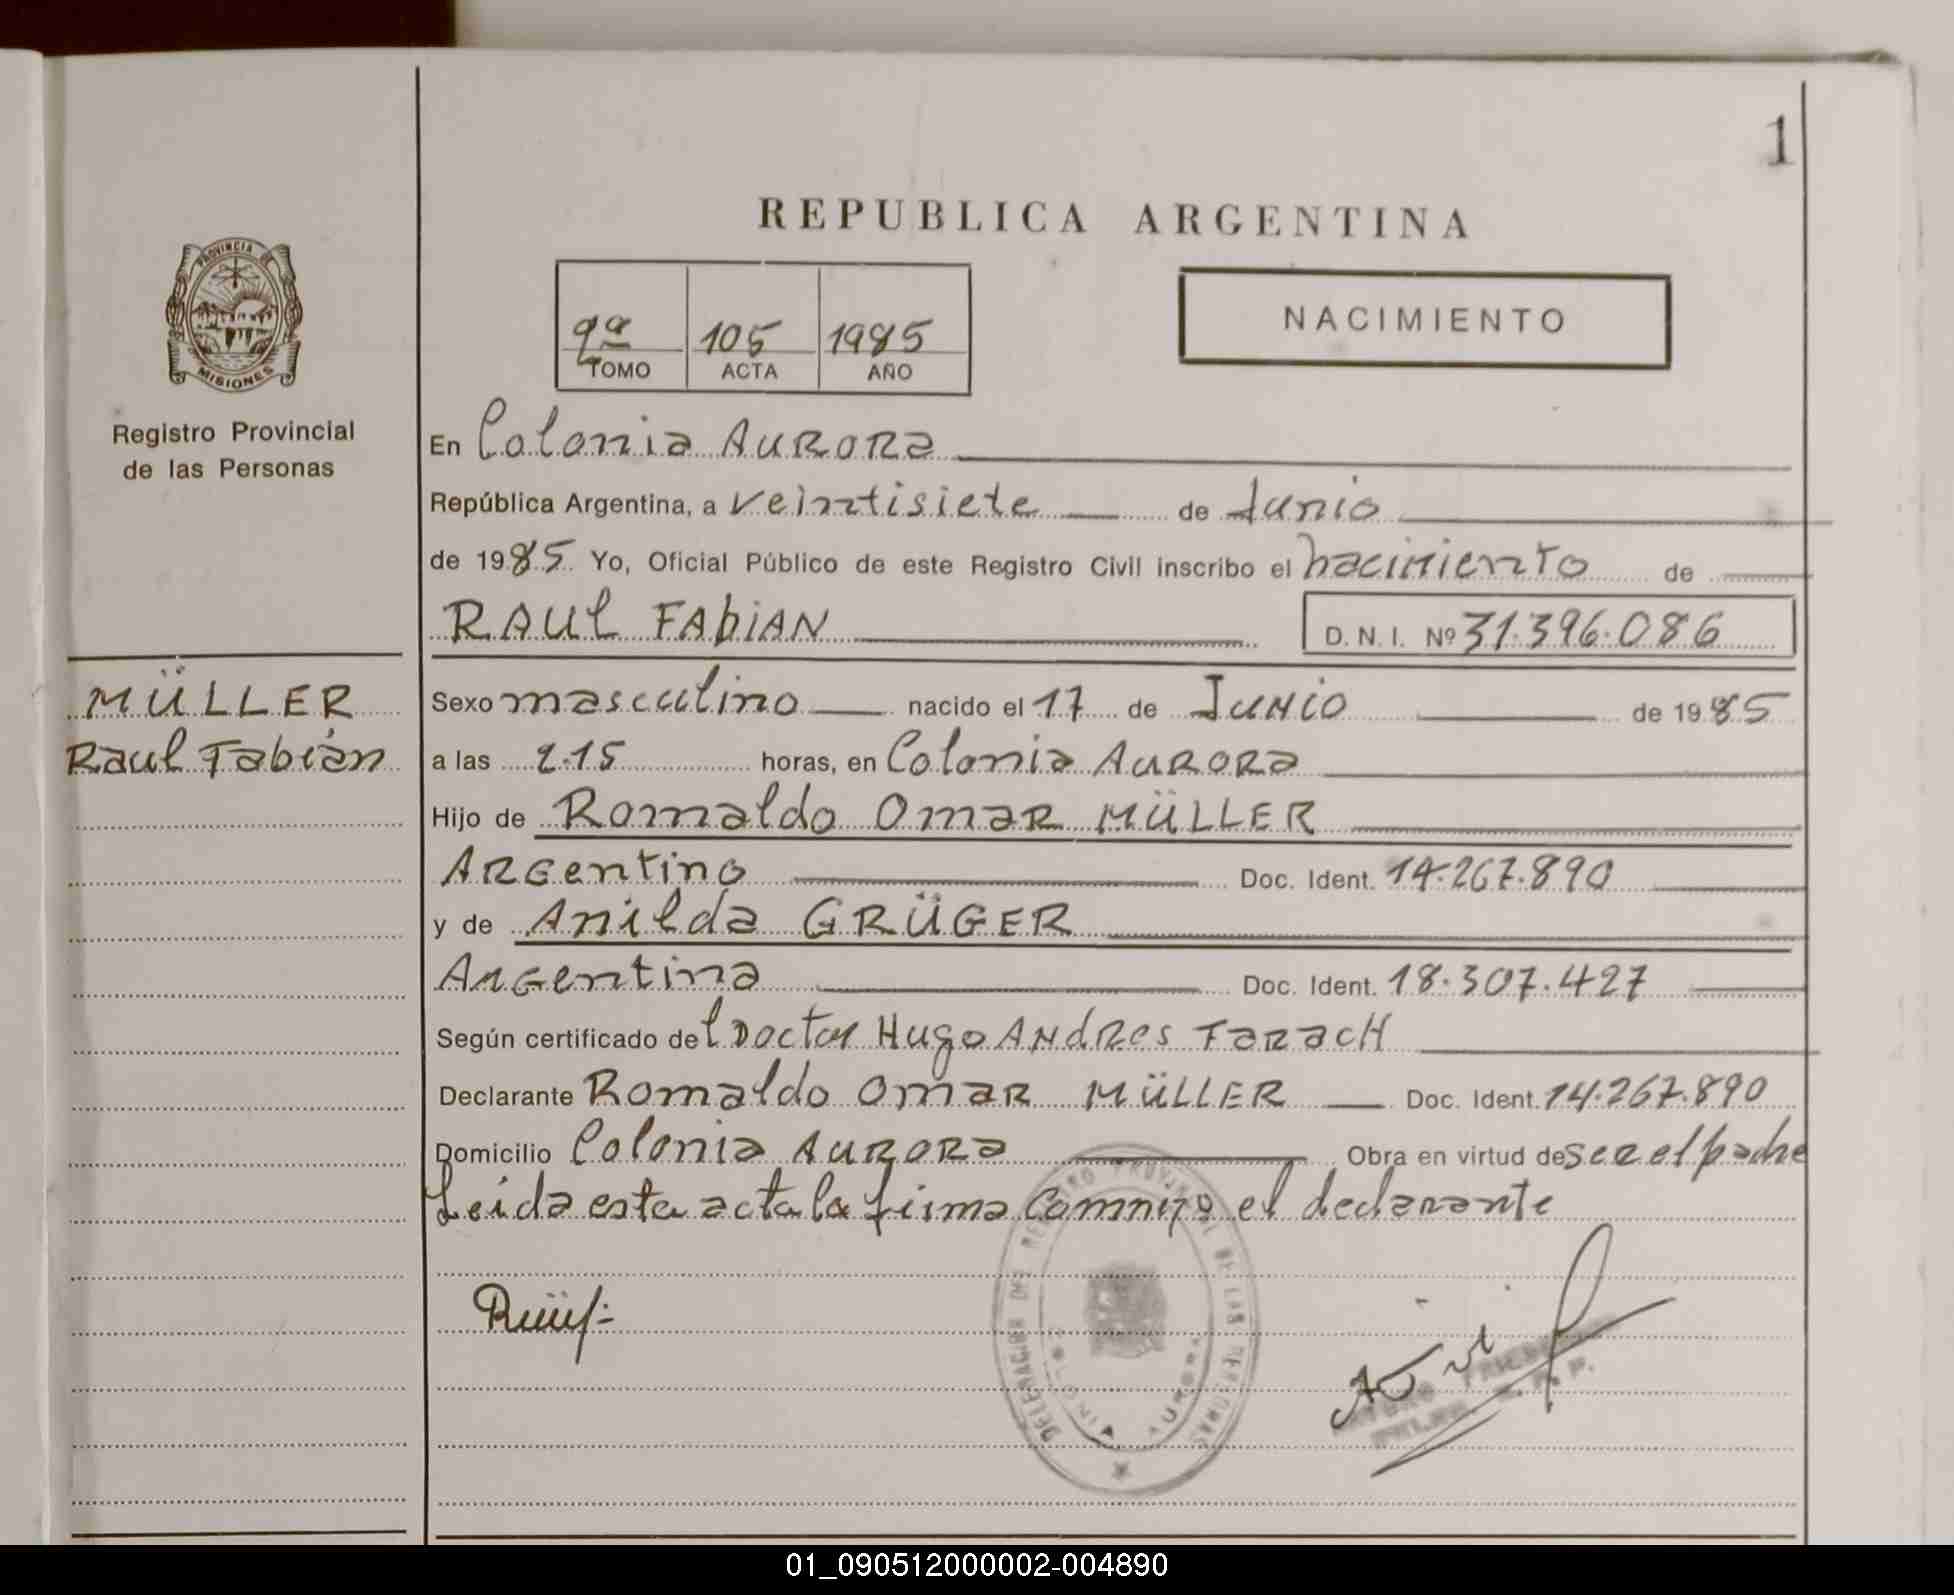 1
REPUBLICA ARGENTINA
PROVINCIA DE
MISIONES
Registro Provincial
de las Personas
105 1985
TOMO ACTA AÑO
NACIMIENTO
En Colonia AURORA
República Argentina, a veintisiete de Junio
de 1985 Yo, Oficial Público de este Registro Civil inscribo el nacimiento de
RAUL FABIAN D. N. I. Nº 31.396.086
MÜLLER
Raul Fabián
Sexo masculino nacido el 17 de Junio de 1985
a las 2.15 horas, en Colonia AURORA
Hijo de Romaldo Omar MÜLLER
Argentino Doc. Ident. 14.267.890
y de Anilda GRÜGER
Argentina Doc. Ident. 18.307.427
Según certificado del Doctor Hugo Andres Farach
Declarante Romaldo Omar MÜLLER Doc. Ident. 14.267.890
Domicilio Colonia Aurora Obra en virtud de ser el padre
Leida esta acta la firma conmigo el declarante
DELEGACION DEL REGISTRO PROVINCIAL DE LAS PERSONAS
COLONIA AURORA
01_090512000002-004890